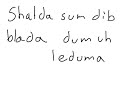 Shalda sum dib
blada dumuh
leduma